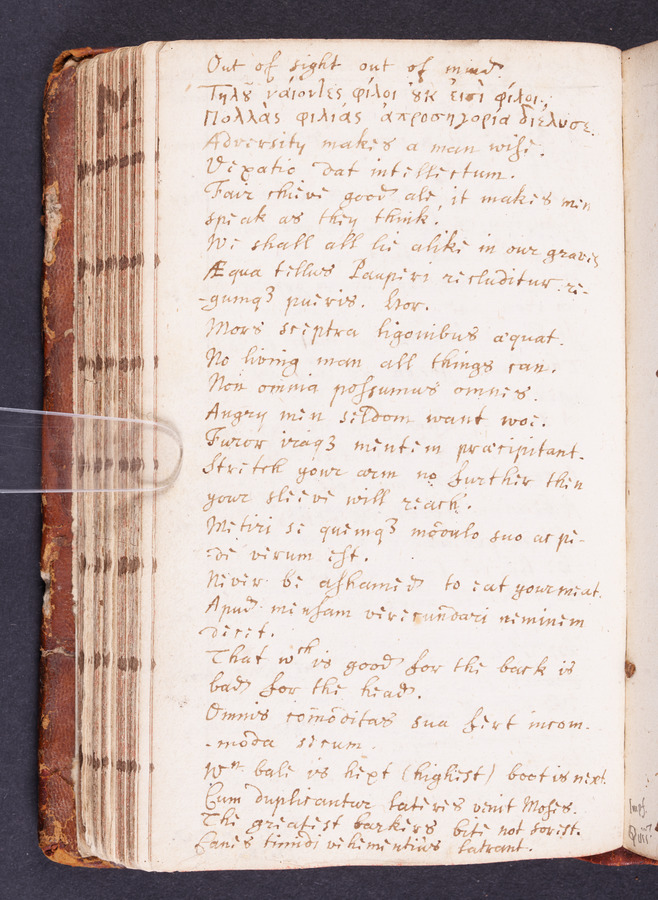 Out of sight out of mind.
Τηλȣ ναίοντες φίλοι ȣκ εἰσὶ φίλοι.
Πολλὰς φιλίας ἀπροσηγορία διέλυσε.
Adversity makes a man wise.
Vexatio dat intellectum.
Fair chieve good ale, it makes men
speak as they think.
We shall all lie alike in our graves
Æqua tellus Pauperi recluditur re-
-gumqꝫ pueris. Hor.
Mors sceptra ligonibus æquat.
No living man all things can.
Non omnia possumus omnes.
Angry men seldom want woe.
Furor iraqꝫ mentem præcipitant.
Stretch your arm no further then
your sleeve will reach.
Metiri se quemqꝫ modulo suo ac pe-
de verum est.
Never be ashamed to eat your meat.
Apud mensam verecundari neminem
decet.
That wch is good for the back is
bad for the head.
Omnis com̄oditas sua fert incom-
-moda secum.
Wn bale is hext (highest) boot is next.
Cum duplicantur lateres venit Moses.
The greatest barkers bite not sorest.
Canes timidi vehementius latrant.